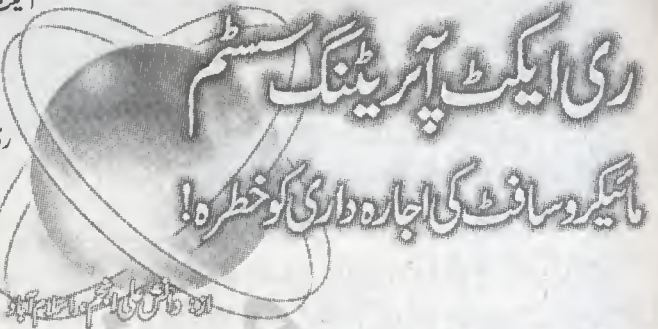 ری ایکٹ آپریٹنگ سسٹم
مائیکروسافٹ کی اجارہ داری کو خطرہ!
از: دانش علی انجم، اسلام آباد